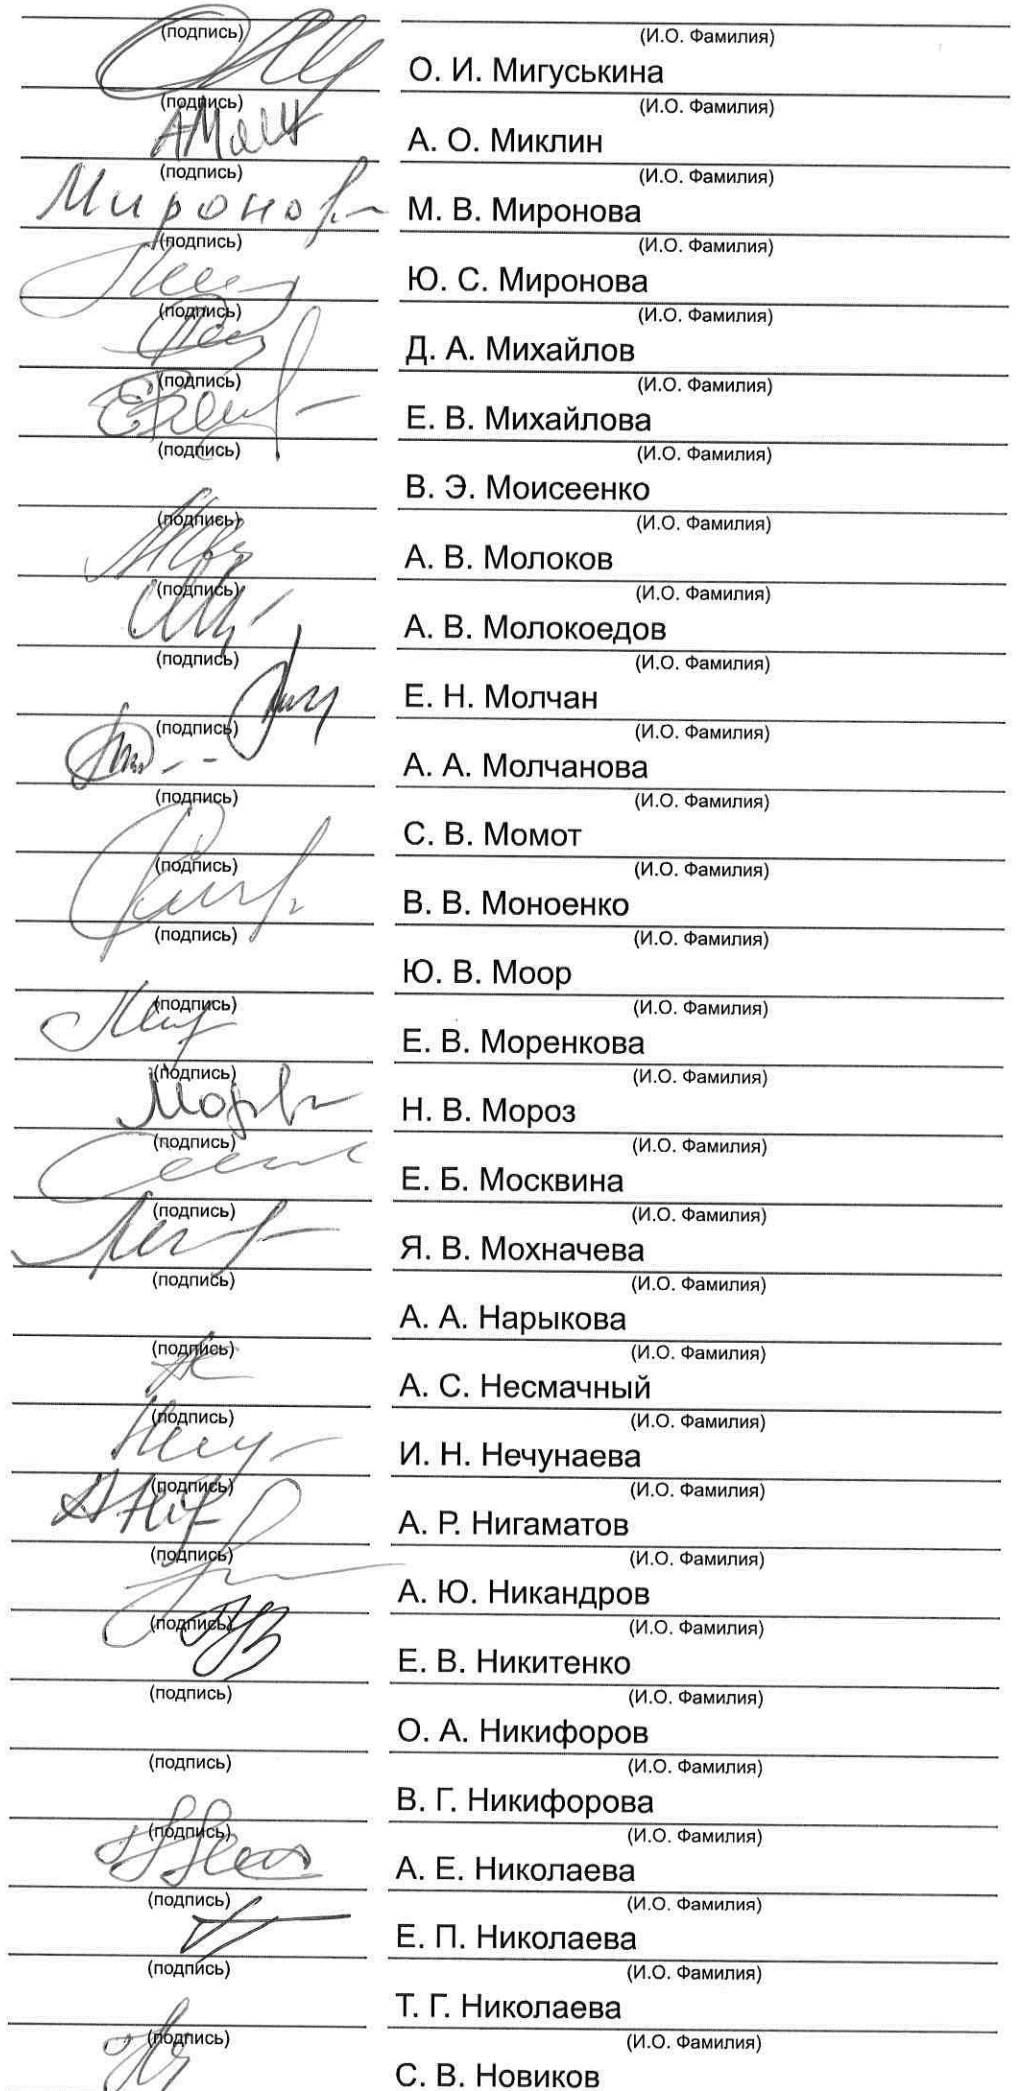 (подпись) (И.О. Фамилия)
О. И. Мигуськина
(подпись) (И.О. Фамилия)
А. О. Миклин
(подпись) (И.О. Фамилия)
Миронов М. В. Миронова
(подпись) (И.О. Фамилия)
Ю. С. Миронова
(подпись) (И.О. Фамилия)
Д. А. Михайлов
(подпись) (И.О. Фамилия)
Е. В. Михайлова
(подпись) (И.О. Фамилия)
В. Э. Моисеенко
(подпись) (И.О. Фамилия)
А. В. Молоков
(подпись) (И.О. Фамилия)
А. В. Молокоедов
(подпись) (И.О. Фамилия)
Е. Н. Молчан
(подпись) (И.О. Фамилия)
А. А. Молчанова
(подпись) (И.О. Фамилия)
С. В. Момот
(подпись) (И.О. Фамилия)
В. В. Моноенко
(подпись) (И.О. Фамилия)
Ю. В. Моор
(подпись) (И.О. Фамилия)
Е. В. Моренкова
(подпись) (И.О. Фамилия)
Н. В. Мороз
(подпись) (И.О. Фамилия)
Е. Б. Москвина
(подпись) (И.О. Фамилия)
Я. В. Мохначева
(подпись) (И.О. Фамилия)
А. А. Нарыкова
(подпись) (И.О. Фамилия)
А. С. Несмачный
(подпись) (И.О. Фамилия)
И. Н. Нечунаева
(подпись) (И.О. Фамилия)
А. Р. Нигаматов
(подпись) (И.О. Фамилия)
А. Ю. Никандров
(подпись) (И.О. Фамилия)
Е. В. Никитенко
(подпись) (И.О. Фамилия)
О. А. Никифоров
(подпись) (И.О. Фамилия)
В. Г. Никифорова
(подпись) (И.О. Фамилия)
А. Е. Николаева
(подпись) (И.О. Фамилия)
Е. П. Николаева
(подпись) (И.О. Фамилия)
Т. Г. Николаева
(подпись) (И.О. Фамилия)
С. В. Новиков